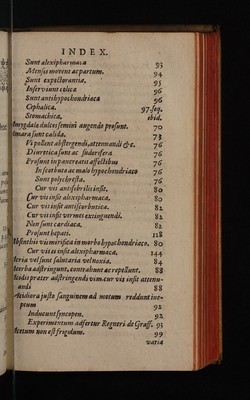 INDEX.
Sunt alexipharmaca 93
Mensis movent ac partum. 94
Sunt expectorantia. 95
Inserviunt colica 96
Sunt antihypochondriaca 96
Cephalica. 97. seq.
Stomachica. ibid.
Amygdala dulces semini augendo prosunt. 70
Amara sunt calida. 73
Vi pollent abstergendi, attenuandi &c. 76
Diuretica sunt ac sudorifera 76
Prosunt in pancreatis affectibus 76
In scorbuto ac malo hypochondriaco 76
Sunt polychresta. 76
Cur vis antifebrilis insit. 80
Cur vis insit alexipharmaca. 80
Cur vis insit antiscorbutica. 82
Cur vis insit vermes extinguendi. 81
Non sunt cardiaca. 82
Prosunt hepati. 118
Absinthii vis mirifica in morbo hypochondriaco. 80
Cur vis ei insit alexipharmaca. 144
Aeria vel sunt salutaria vel noxia. 84
Acerba adstringunt, contrahunt ac repellunt. 88
Acidis prater adstringendi vim cur vis insit attenuandi 88
Acidiora justo sanguinem ad motum reddunt ineptum 92
Inducunt syncopen. 92
Experimentum adfertur Regneri de Graff. 93
Acetum non est frigidum. 99
varia